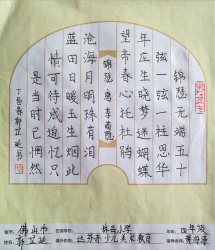 锦瑟无端五十
弦一弦一柱思华
年庄生晓梦迷蝴蝶
望帝春心托杜鹃
锦瑟 唐 李商隐
沧海月明珠有泪
蓝田日暖玉生烟此
情可待成追忆只
是当时已惘然
丁酉春郭芷延书
城市：佛山市 林岳小学 年级：四年级
姓名：郭芷延 达芬奇少儿美术教育